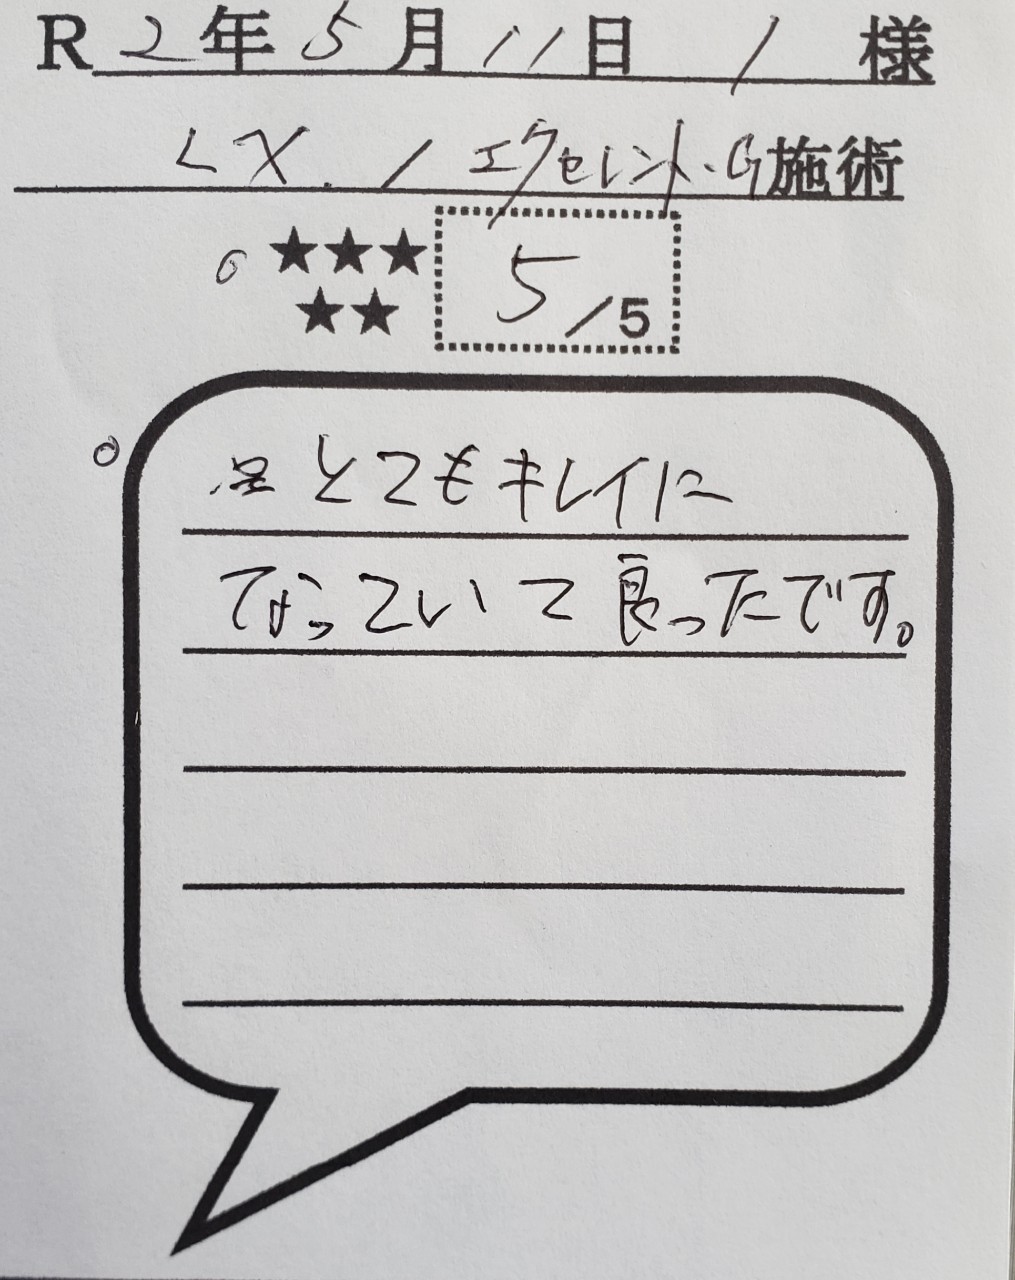 R2年5月11日 / 様
LX. / エクセレント・G施術
★★★
★★
5/5
とてもキレイに
なっていて良ったです。